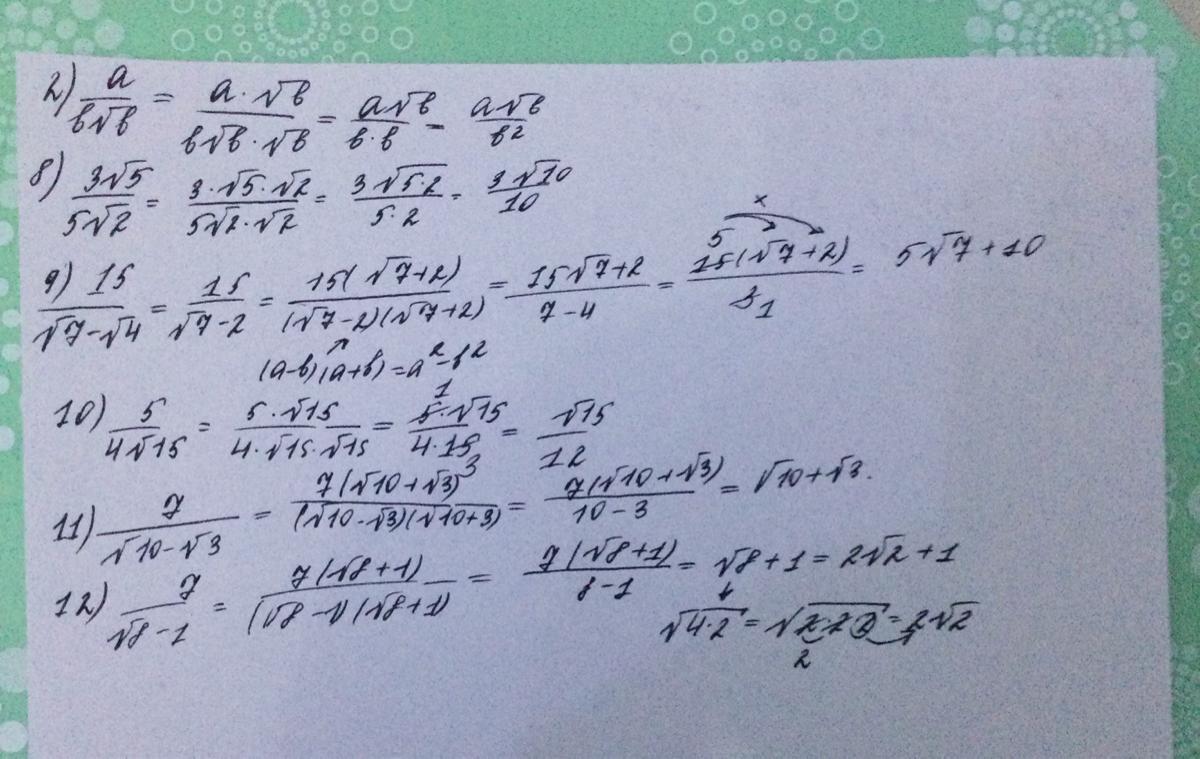 2) a/(b√b) = (a·√b)/(b√b·√b) = (a√b)/(b·b) = (a√b)/b²
8) (3√5)/(5√2) = (3·√5·√2)/(5√2·√2) = (3√(5·2))/(5·2) = (3√10)/10
9) 15/(√7-√4) = 15/(√7-2) = (15(√7+2))/((√7-2)(√7+2)) = (15√7+2)/(7-4) = (15(√7+2))/3 = 5√7+10
5 x 1
(a-b)(a+b) = a²-b²
10) 5/(4√15) = (5·√15)/(4·√15·√15) = (5·√15)/(4·15) = √15/12
1 3
11) 7/(√10-√3) = (7(√10+√3))/((√10-√3)(√10+3)) = (7(√10+√3))/(10-3) = √10+√3.
12) 7/(√8-1) = (7(√8+1))/((√8-1)(√8+1)) = (7(√8+1))/(8-1) = √8+1 = 2√2+1
√(4·2) = √(2·2·2) = 2√2
2